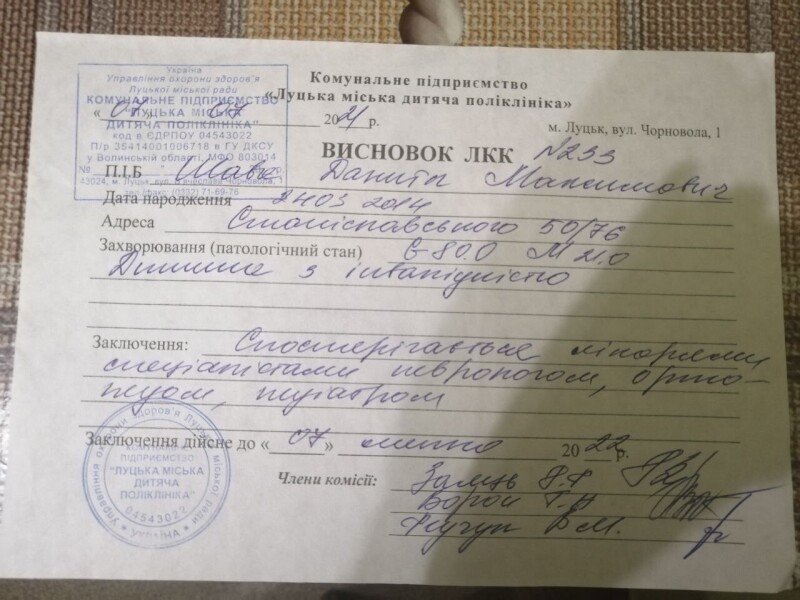 Україна
Управління охорони здоров'я
Луцької міської ради
КОМУНАЛЬНЕ ПІДПРИЄМСТВО
"ЛУЦЬКА МІСЬКА
ДИТЯЧА ПОЛІКЛІНІКА"
код в ЄДРПОУ 04543022
П/р 35414001006718 в ГУ ДКСУ
у Волинській області, МФО 803014
43024, м. Луцьк, вул.
тел./факс. (0332) 71-69-76
Комунальне підприємство
«Луцька міська дитяча поліклініка»
« 07 » 07 2021 р.
м. Луцьк, вул. Чорновола, 1
ВИСНОВОК ЛКК №233
П.І.Б Данило Максимович
Дата народження 24 03 2014
Адреса Станіславського 50/76
Захворювання (патологічний стан) G 80.0 M 21.0
Дитина з інвалідністю
Заключення: Спостерігається лікарями
спеціалістами неврологом, орто-
педом, педіатром
Заключення дійсне до « 07 » липня 2022р.
Члени комісії:
Управління охорони здоров'я Луцької міської ради
ПІДПРИЄМСТВО
"ЛУЦЬКА МІСЬКА
ДИТЯЧА
ПОЛІКЛІНІКА"
04543022
* УКРАЇНА *